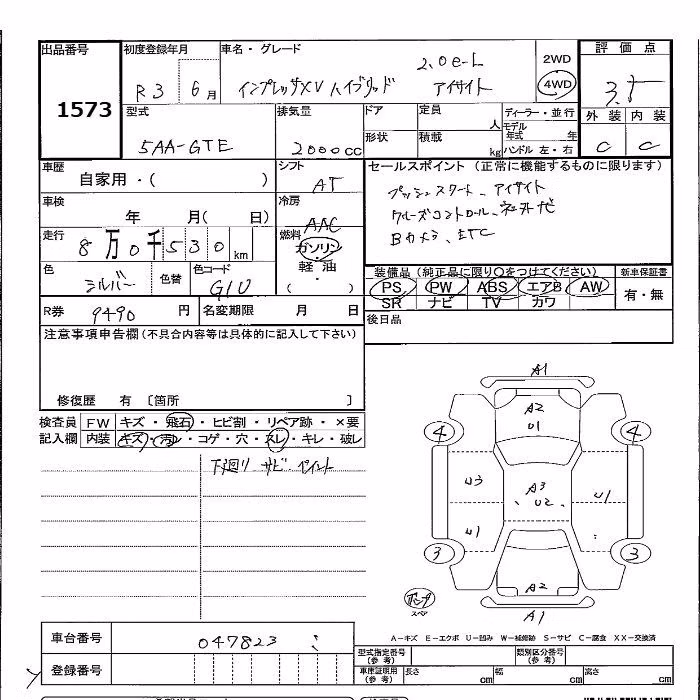 出品番号 初度登録年月 車名・グレード 評価点
1573 R3 6月 インプレッサXV ハイブリッド 2.0e-L アイサイト 2WD 4WD 3.5
型式 排気量 ドア 定員 人 ディーラー・並行 外装 内装
5AA-GTE 2000cc 形状 積載 kg モデル年式 年 ハンドル 左・右 C C
車歴 シフト セールスポイント (正常に機能するものに限ります)
自家用・( ) AT プッシュスタート、アイサイト
車検 冷房 クルーズコントロール、社外ナビ
年 月( 日) AAC Bカメラ、ETC
走行 燃料
8万0千530km ガソリン
色 色替 色コード 軽油 装備品 (純正品に限り○をつけてください) 新車保証書
シルバー G1U ・( ) PS PW ABS エアB AW 有・無
SR ナビ TV カワ
R券 9490円 名変期限 月 日 後日品
注意事項申告欄(不具合内容等は具体的に記入して下さい)
修復歴 有 〔箇所 〕
検査員 FW キズ・飛石・ヒビ割・リペア跡・×要
記入欄 内装 キズ・汚レ・コゲ・穴・スレ・キレ・破レ
下廻り サビ・ペイント
A1
A2
U1
4 4
U3 A3 U1
U2
U1
3 3
A2
テンプ
スペア
A1
A-キズ E-エクボ U-凹み W-補修跡 S-サビ C-腐食 XX-交換済
車台番号 047823
型式指定番号(参考) 類別区分番号(参考)
登録番号 車庫証明用(参考) 長さ cm 幅 cm 高さ cm